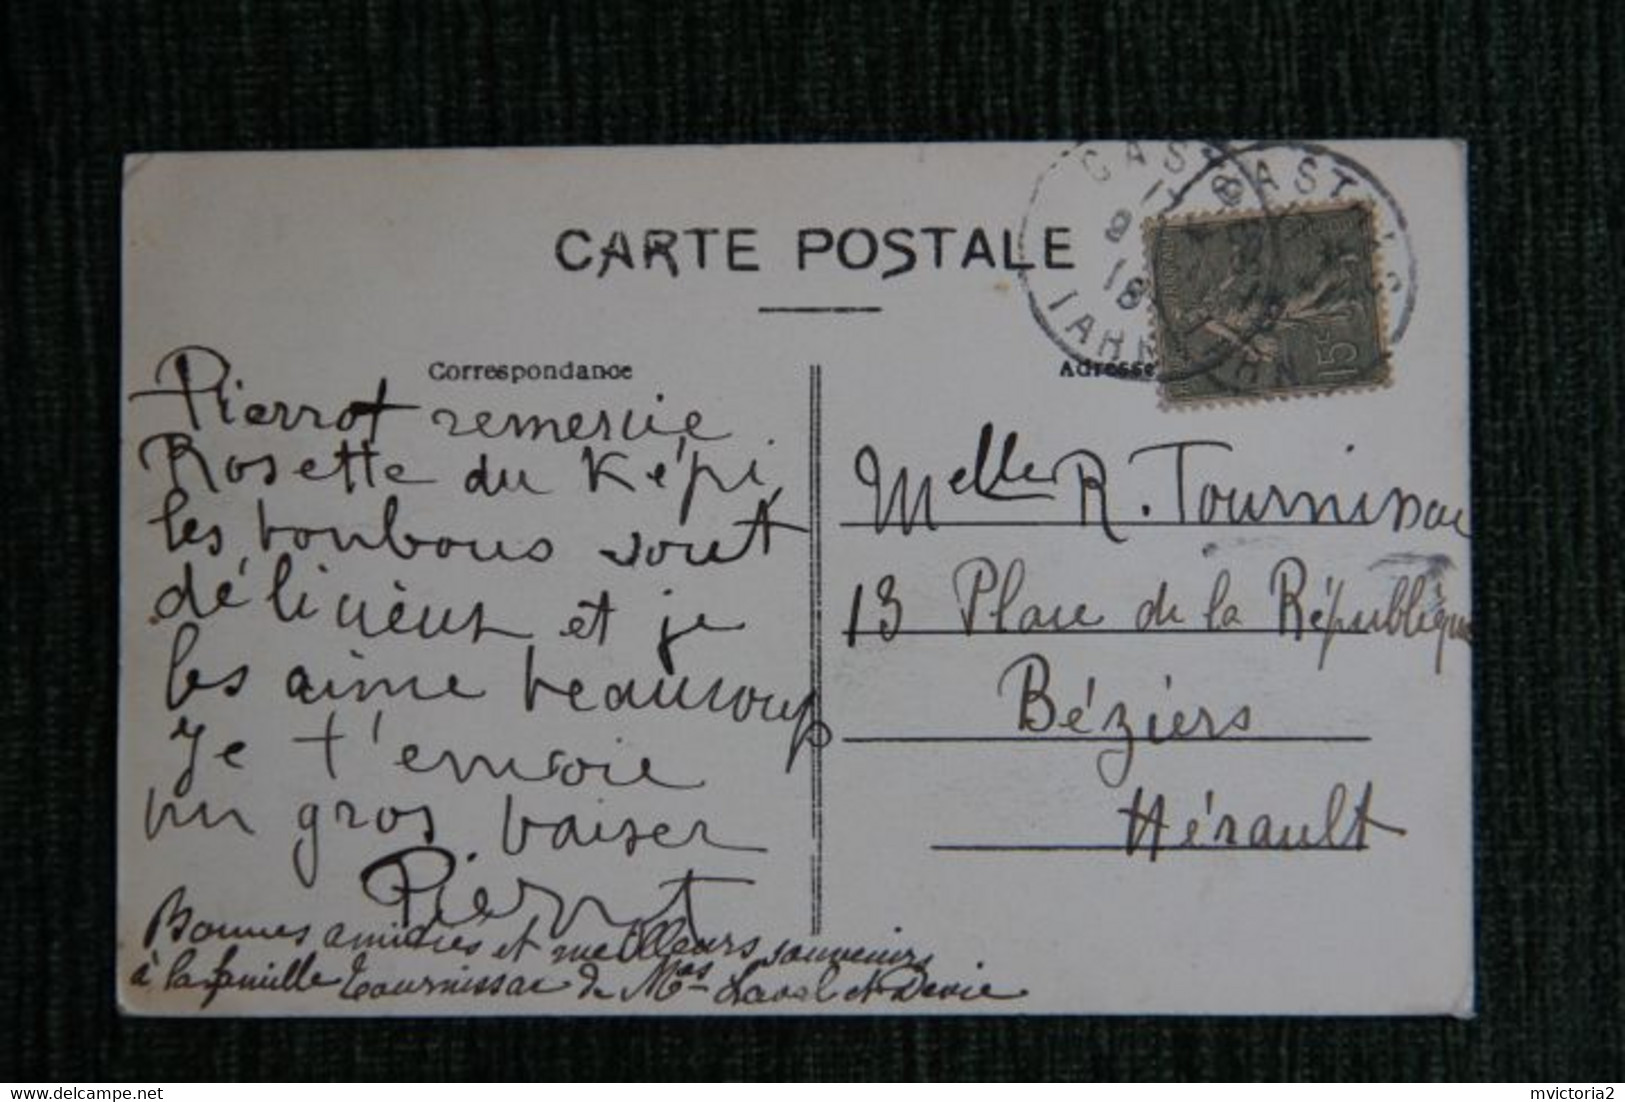 CARTE POSTALE
Correspondance
Pierrot remercie
Rosette du Képi
les bonbons sont
délicieux et je
les aime beaucoup
Je t'envoie
un gros baiser
Pierrot
Bonnes amitiés et meilleurs souvenirs
à la famille Tournissac de Mes Laval et
Adresse
CAST
CASTRES
TARN
TARN
18
15c
Melle R. Tournissac
13 Place de la République
Béziers
Hérault
delcampe.net
mvictoria2